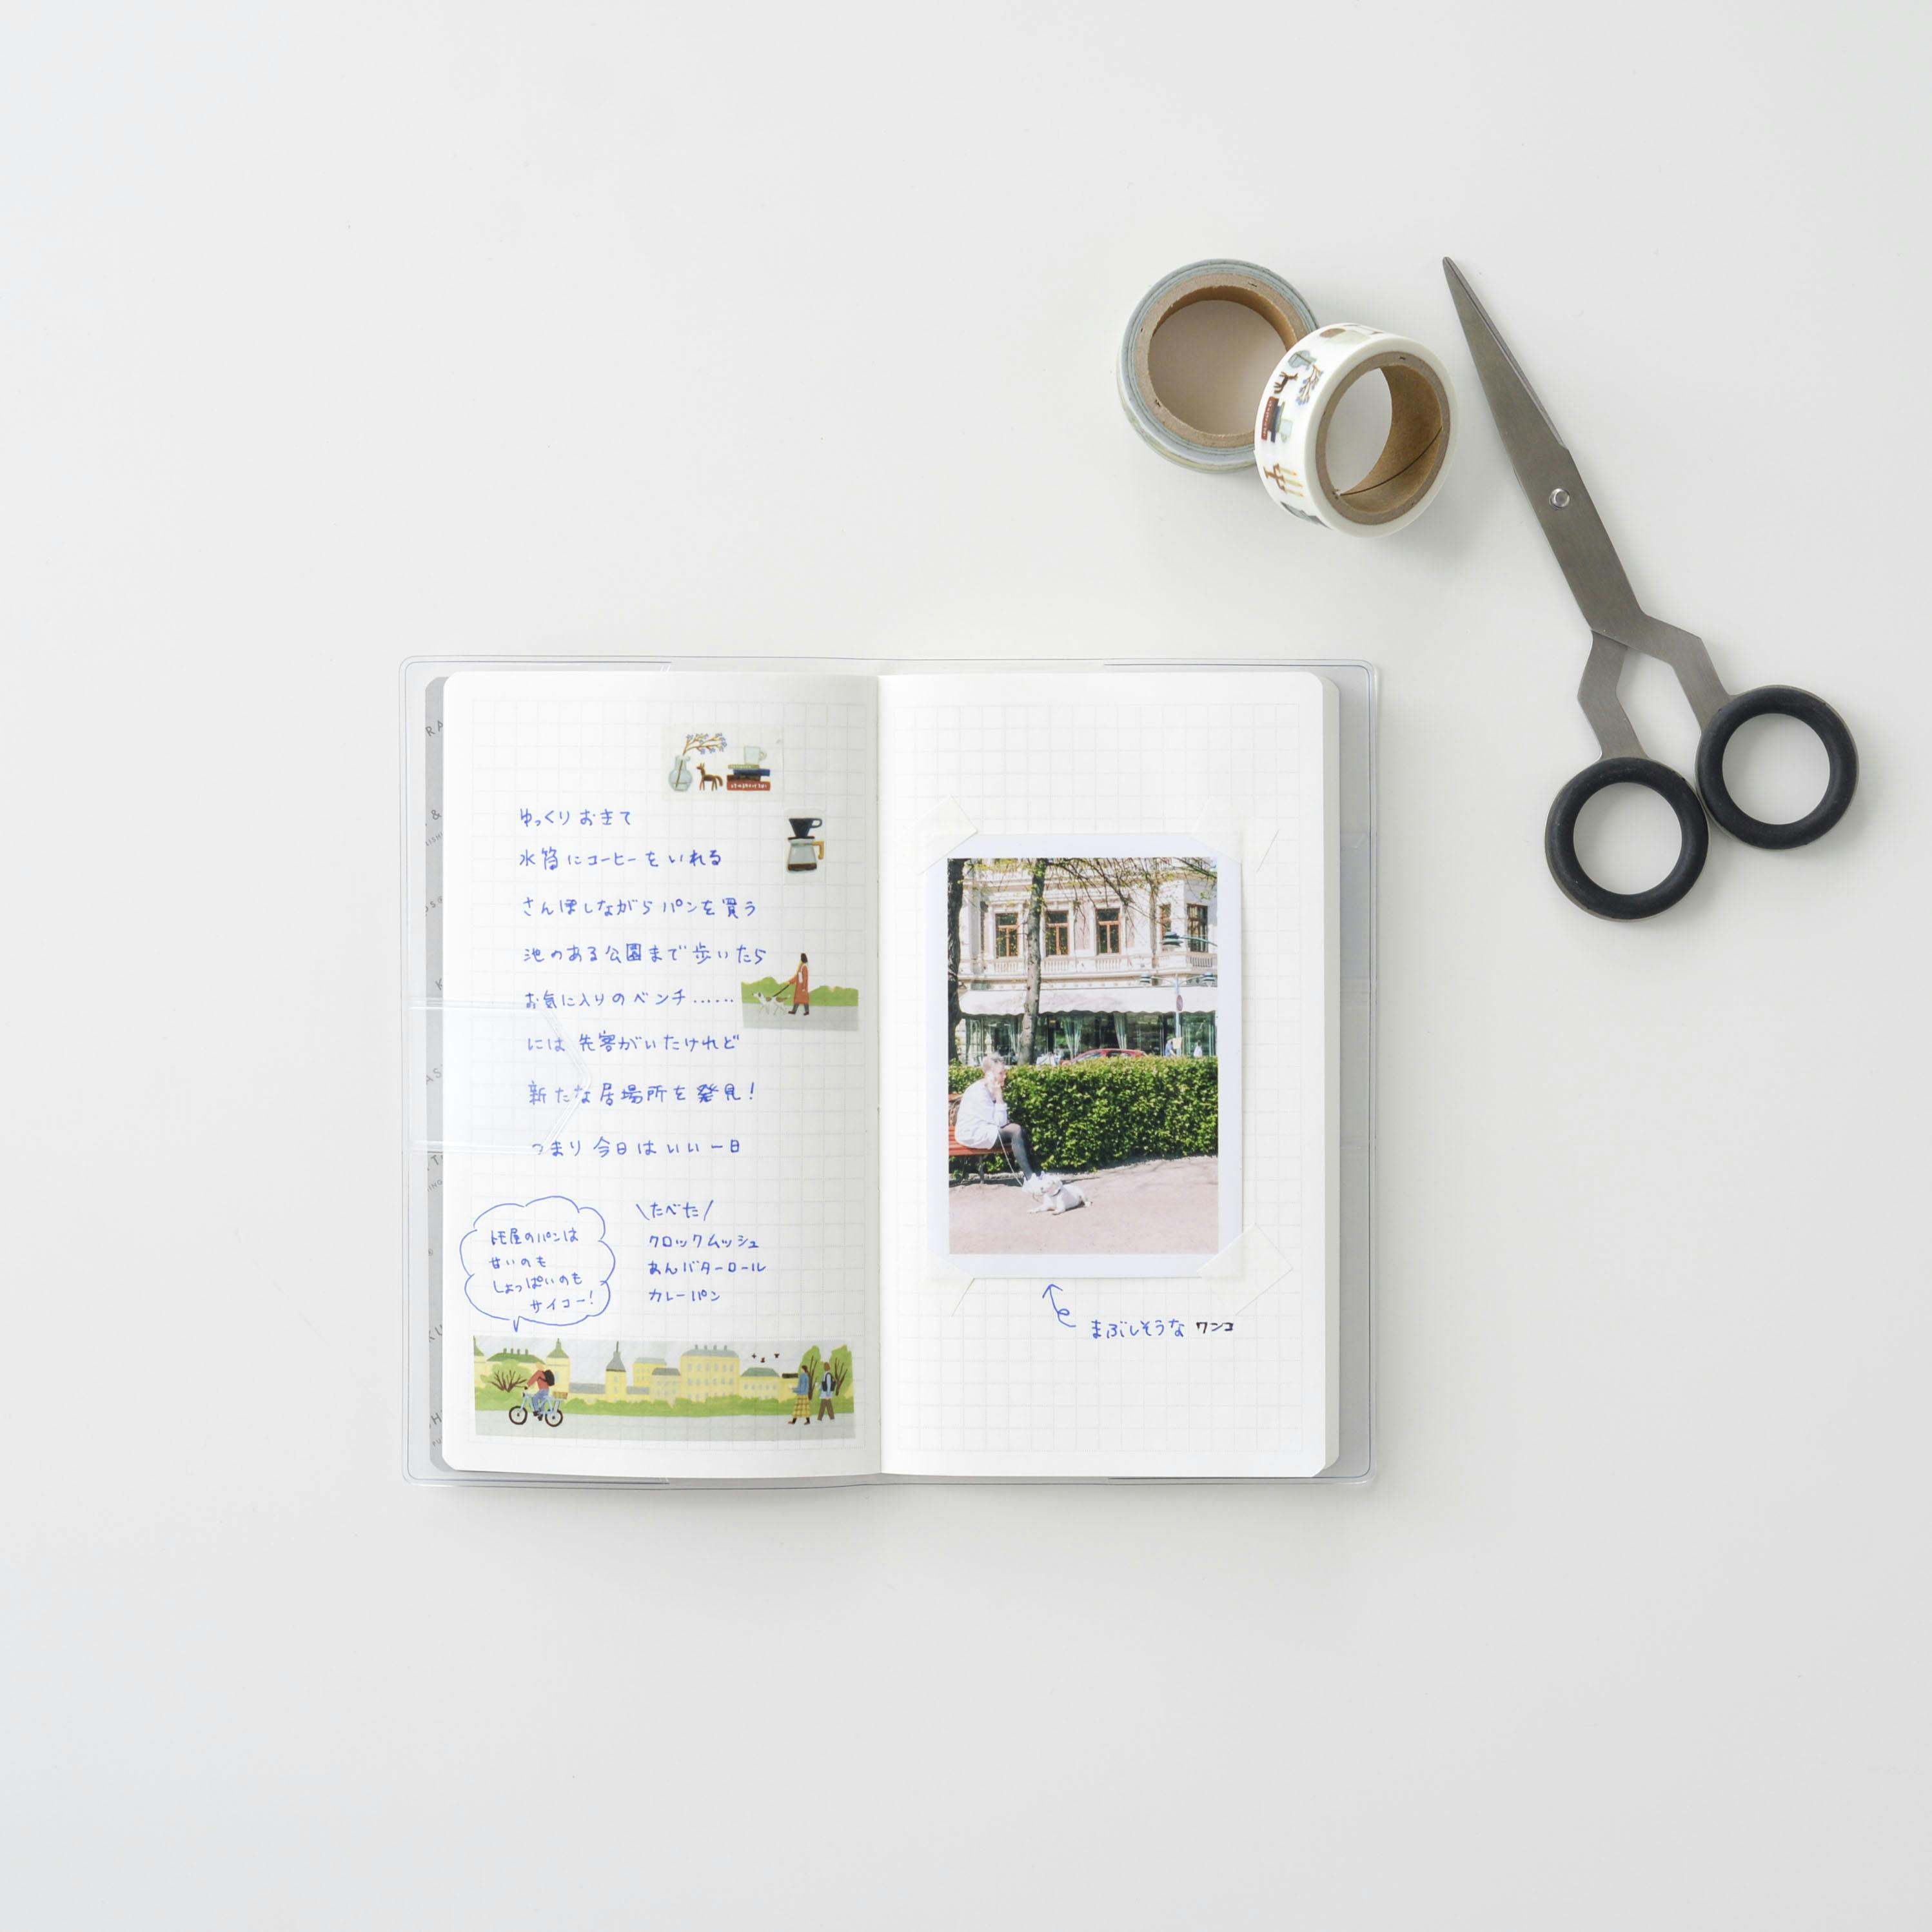 ゆっくりおきて
水筒にコーヒーをいれる
さんぽしながらパンを買う
池のある公園まで歩いたら
お気に入りのベンチ……
には先客がいたけれど
新たな居場所を発見!
つまり今日はいい一日
\たべた/
クロックムッシュ
あんバターロール
カレーパン
トモ屋のパンは
甘いのも
しょっぱいのも
サイコー!
まぶしそうなワンコ